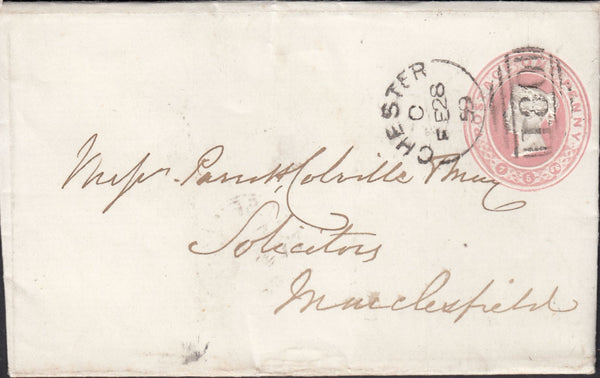 CHESTER
C
FE 28
59
180
PENNY
Messrs. Parrott, Colville & May
Solicitors
Macclesfield